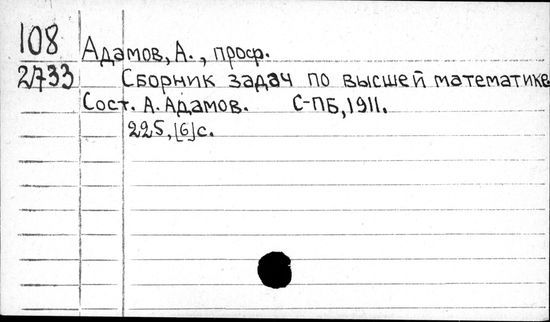 108
2/733
Адамов, А., проф.
Сборник задач по высшей математике
Сост. А. Адамов. С-ПБ, 1911.
225, [6] с.